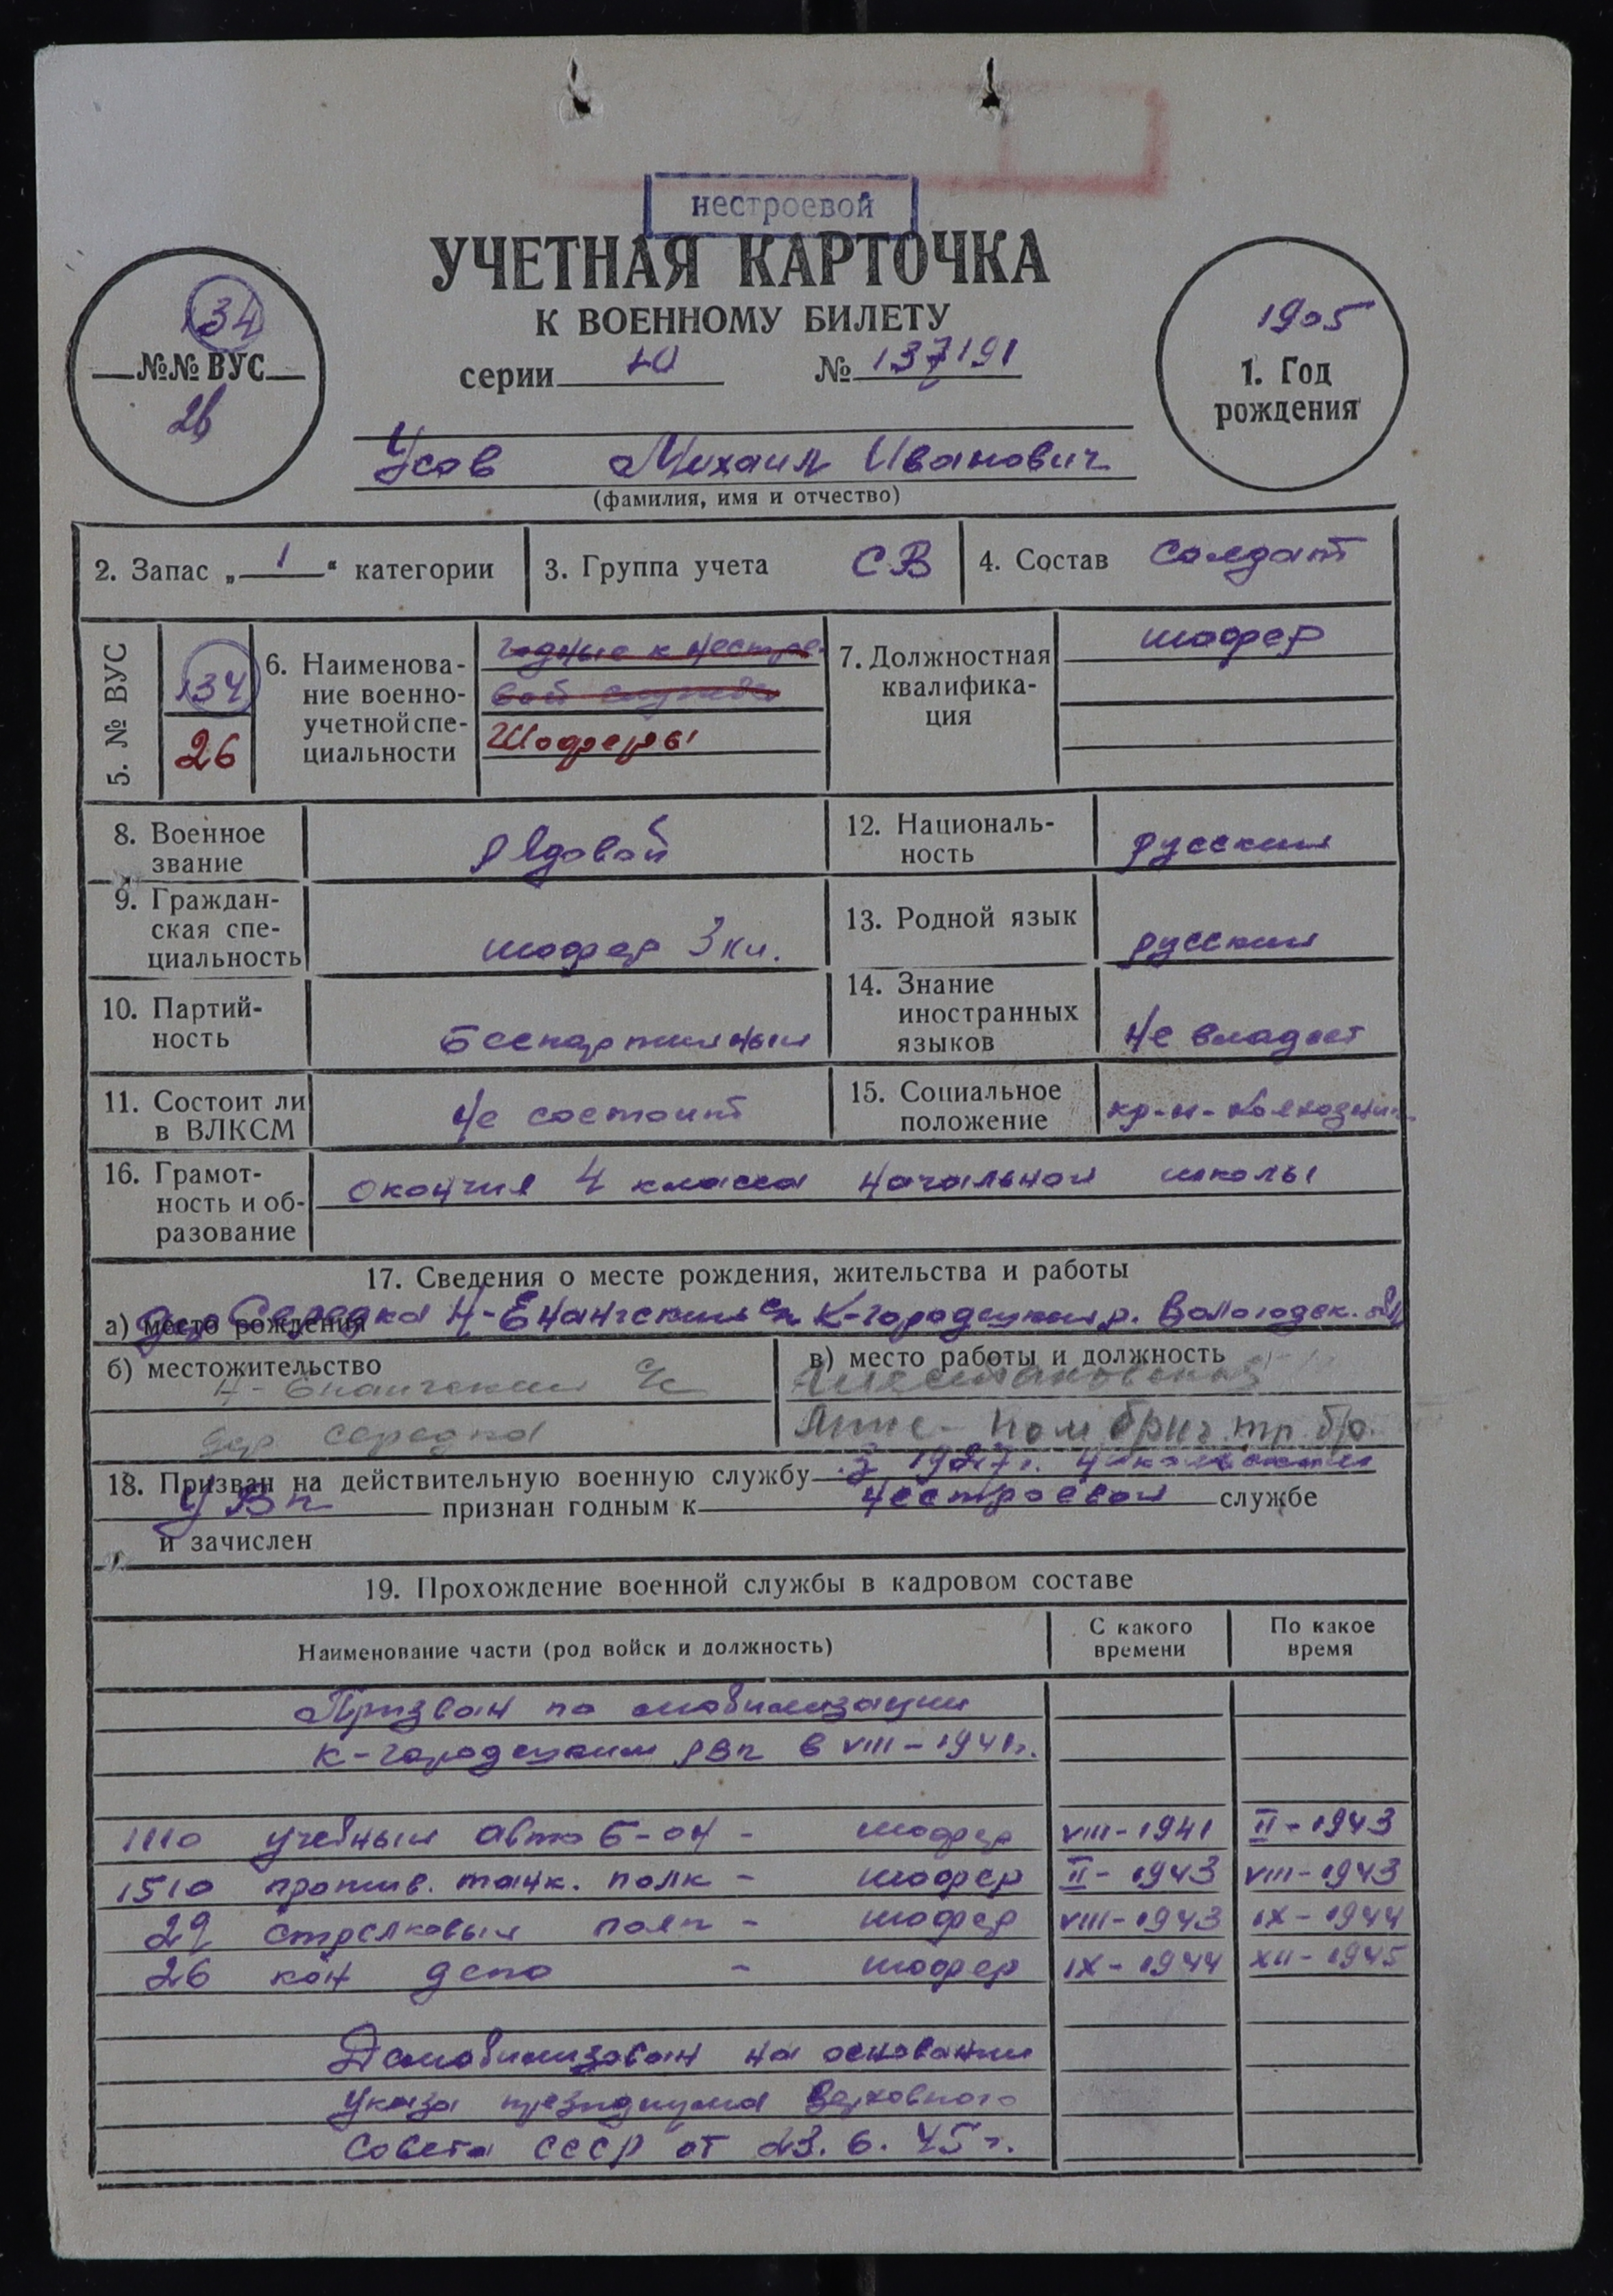 нестроевой
УЧЕТНАЯ КАРТОЧКА
К ВОЕННОМУ БИЛЕТУ
серии № 137191
134
№№ ВУС
26
1905
1. Год
рождения
Усов Михаил Иванович
(фамилия, имя и отчество)
2. Запас „ 1 “ категории
3. Группа учета СВ
4. Состав Солдат
5. № ВУС
134
26
6. Наименова-
ние военно-
учетной спе-
циальности
годные к нестрое-
вой службе
Шоферы
7. Должностная
квалифика-
ция
шофер
8. Военное
звание
Рядовой
12. Националь-
ность
русский
9. Граждан-
ская спе-
циальность
шофер 3 кл.
13. Родной язык
русский
10. Партий-
ность
Беспартийный
14. Знание
иностранных
языков
не владеет
11. Состоит ли
в ВЛКСМ
Не состоит
15. Социальное
положение
кр-н-колхозник
16. Грамот-
ность и об-
разование
окончил 4 класса начальной школы
17. Сведения о месте рождения, жительства и работы
а) место рождения дер Середка Н-Енангский с/с К-городецкий р. Вологодск. обл
б) местожительство
Н-Енангский с/с
дер середка
в) место работы и должность
Шестаковская
пом бриг. тр. бр.
18. Призван на действительную военную службу 1927 г. Никольским
УВК признан годным к нестроевой службе
и зачислен
19. Прохождение военной службы в кадровом составе
Наименование части (род войск и должность)
С какого
времени
По какое
время
Призван по мобилизации
К-городецким РВК в VIII-1941г.
1110 учебный авто б-он - шофер VIII-1941 II-1943
1510 против. танк. полк - шофер II-1943 VIII-1943
29 стрелковый полк - шофер VIII-1943 IX-1944
26 кон депо - шофер IX-1944 XII-1945
Демобилизован на основании
Указа президиума Верховного
Совета СССР от 23.6.45г.